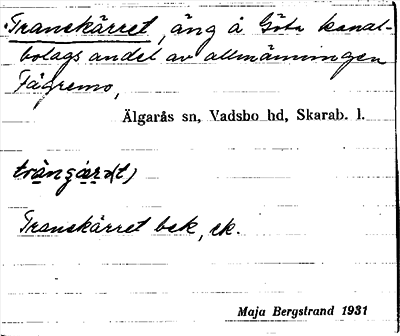 Transkärret, äng å Göta kanal-
bolags andel av allmänningen
Fägremo,
Älgarås sn, Vadsbo hd, Skarab. l.
Transkärret bek, ek.
Maja Bergstrand 1931